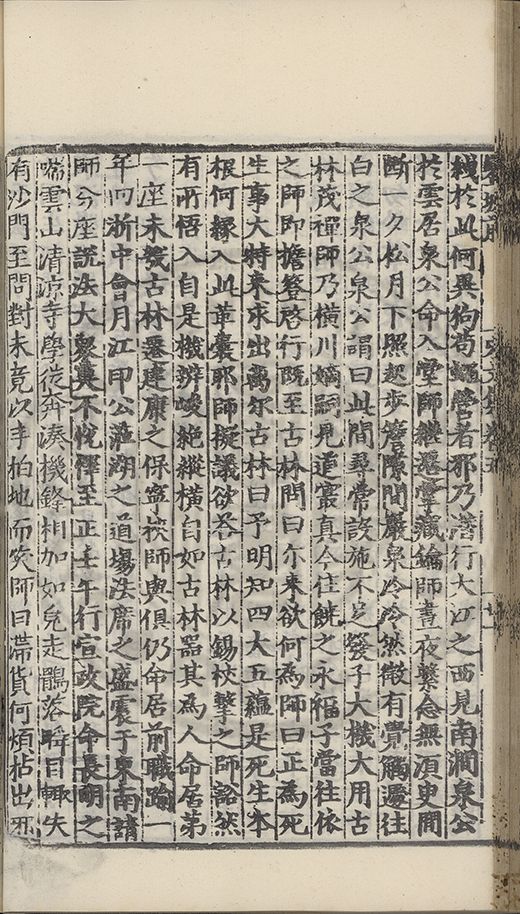 機於此何異狗苟蠅營者邪乃潛行大江之西見南澗泉公
於雲居泉公命入堂師繼還掌藏鑰師晝夜繫念無須㬰間
斷一夕松月下照起步簷隙間巖泉泠泠然微有覺觸遽往
白之泉公泉公謂曰此間尋常設施不足發子大機大用古
林茂禪師乃橫川嫡嗣見道叢真今住饒之永福子當往依
之師即擔簦啓行既至古林問曰尔来欲何為師曰正為死
生事大特来求出離尔古林曰予明知四大五蘊是死生本
根何緣入此革囊耶師擬議欲荅古林以錫杖擊之師豁然
有所悟入自是機辨峻絶縱橫自如古林噐其為人命居第
一座未幾古林遷建康之保寧挾師與俱仍命居前職踰一
年回浙中會月江印公涖湖之道場法席之盛震于東南請
師分座説法大衆莫不悅懌至正壬午行宣政院命長明之
瑞雲山清涼寺學徒奔湊機鋒相加如兔走鶻落瞬目輒失
有沙門至問對未竟以手拍地而笑師曰滯貨何煩拈出邪